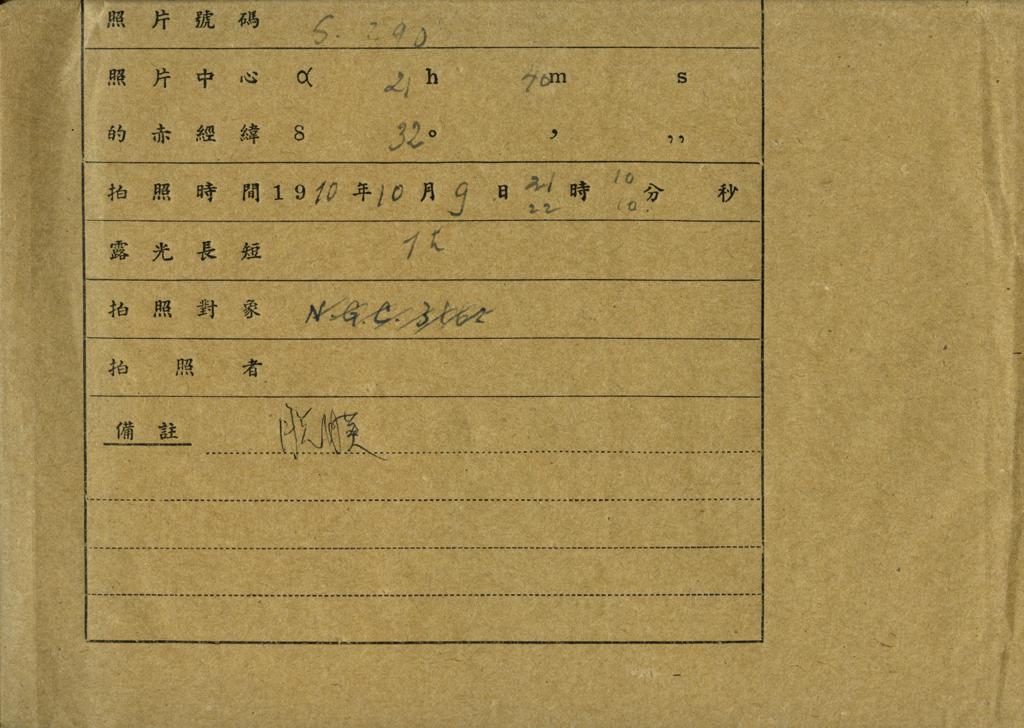 照片號碼 S. 290
照片中心 α 21h 40m s
的赤經緯 δ 32° ′ ″
拍照時間 1910年10月9日 21時 10分 秒
22 10
露光長短 1h
拍照對象 N.G.C.
拍照者
備註 脱膜